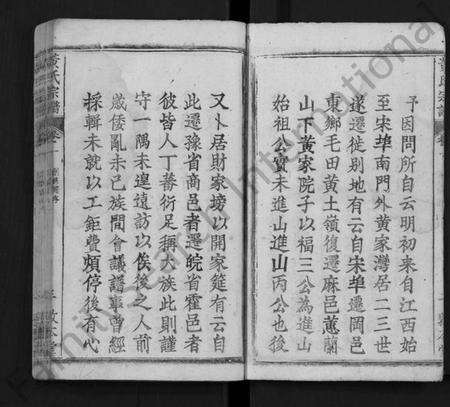 予因問所自云明初来自江西始
至宋埠南門外黄家灣居二三世
遂遷徙别地有云自宋埠遷岡邑
東鄉毛田黄土嶺復遷麻邑蕙蘭
山下黄家院子以福三公為進山
始祖公實未進山進山丙公也後
又卜居財家塝以開家筵有云自
此遷豫省商邑者遷皖省霍邑者
彼皆人丁蕃衍足稱大族此則謹
守一隅未遑遠訪以俟後之人前
歲倭亂未已族間會議譜事曾經
採輯未就以工鉅費煩停後有心
黄氏宗譜
卷
黄氏宗譜
卷一
Family Search International